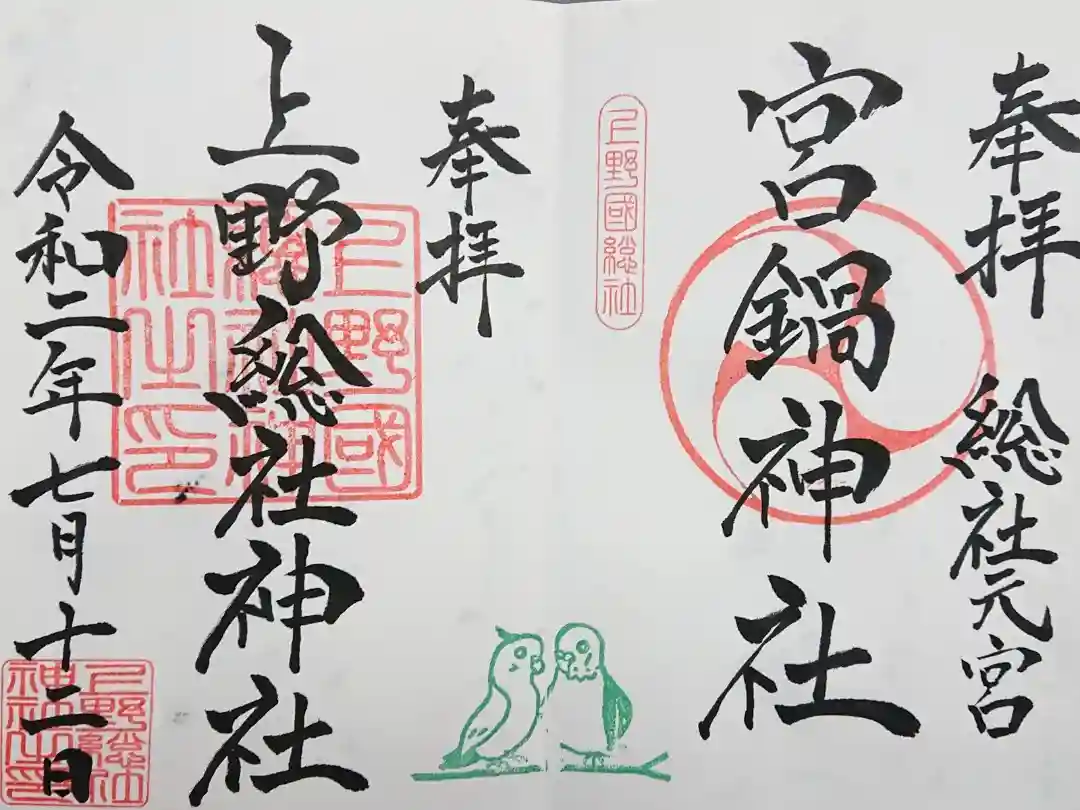 奉拝
総社元宮
宮鍋神社
上野國総社
奉拝
上野総社神社
上野國総社神社之印
令和二年七月十二日
上野総社神社之印